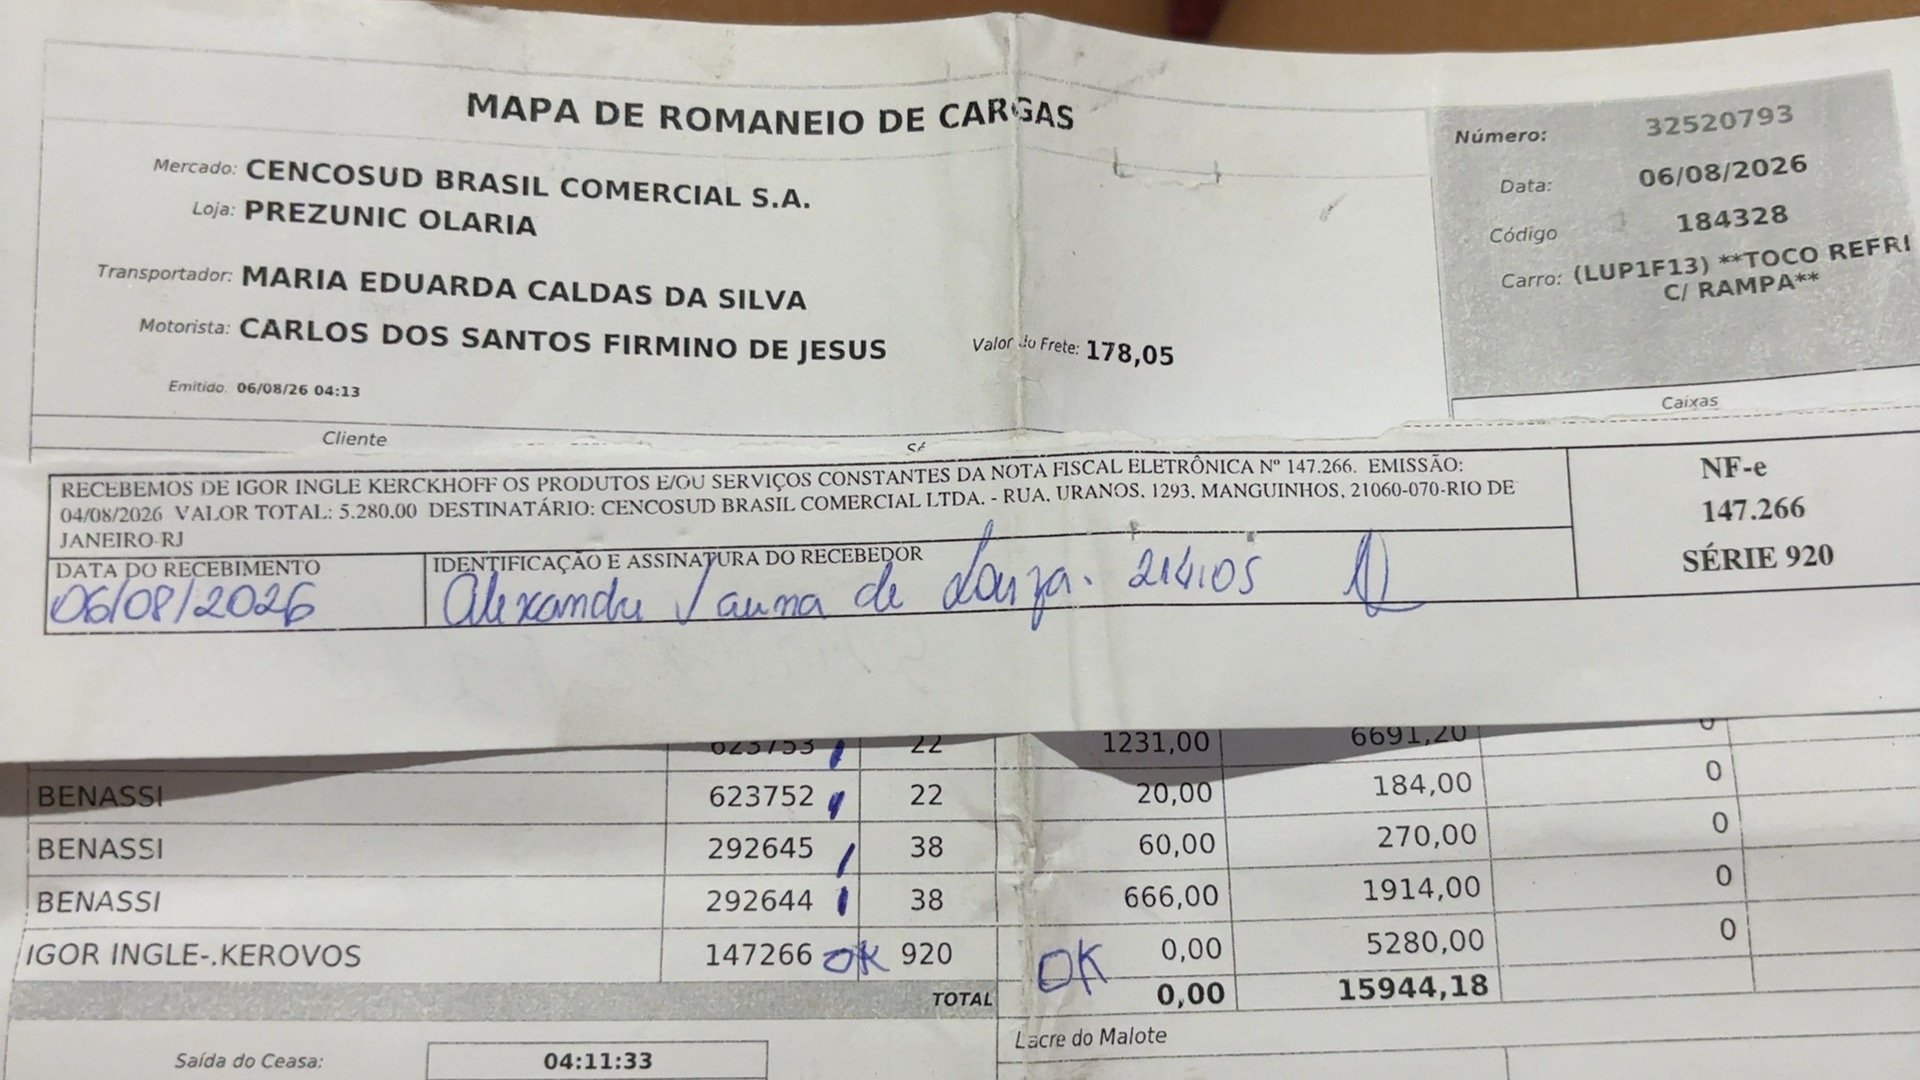 MAPA DE ROMANEIO DE CARGAS
Mercado: CENCOSUD BRASIL COMERCIAL S.A.
Loja: PREZUNIC OLARIA
Transportador: MARIA EDUARDA CALDAS DA SILVA
Motorista: CARLOS DOS SANTOS FIRMINO DE JESUS
Valor do Frete: 178,05
Emitido. 06/08/26 04:13
Número: 32520793
Data: 06/08/2026
Código 184328
Carro: (LUP1F13) **TOCO REFRI
C/ RAMPA**
Cliente Caixas
RECEBEMOS DE IGOR INGLE KERCKHOFF OS PRODUTOS E/OU SERVIÇOS CONSTANTES DA NOTA FISCAL ELETRÔNICA Nº 147.266. EMISSÃO:
04/08/2026 VALOR TOTAL: 5.280.00 DESTINATÁRIO: CENCOSUD BRASIL COMERCIAL LTDA. - RUA, URANOS, 1293, MANGUINHOS, 21060-070-RIO DE
JANEIRO-RJ
NF-e
147.266
SÉRIE 920
DATA DO RECEBIMENTO
06/08/2026
IDENTIFICAÇÃO E ASSINATURA DO RECEBEDOR
de Souza. 214105
623753 22 1231,00 6691,20 0
BENASSI 623752 22 20,00 184,00 0
BENASSI 292645 38 60,00 270,00 0
BENASSI 292644 38 666,00 1914,00 0
IGOR INGLE-.KEROVOS 147266 OK 920 OK 0,00 5280,00 0
TOTAL 0,00 15944,18
Lacre do Malote
Saída do Ceasa: 04:11:33